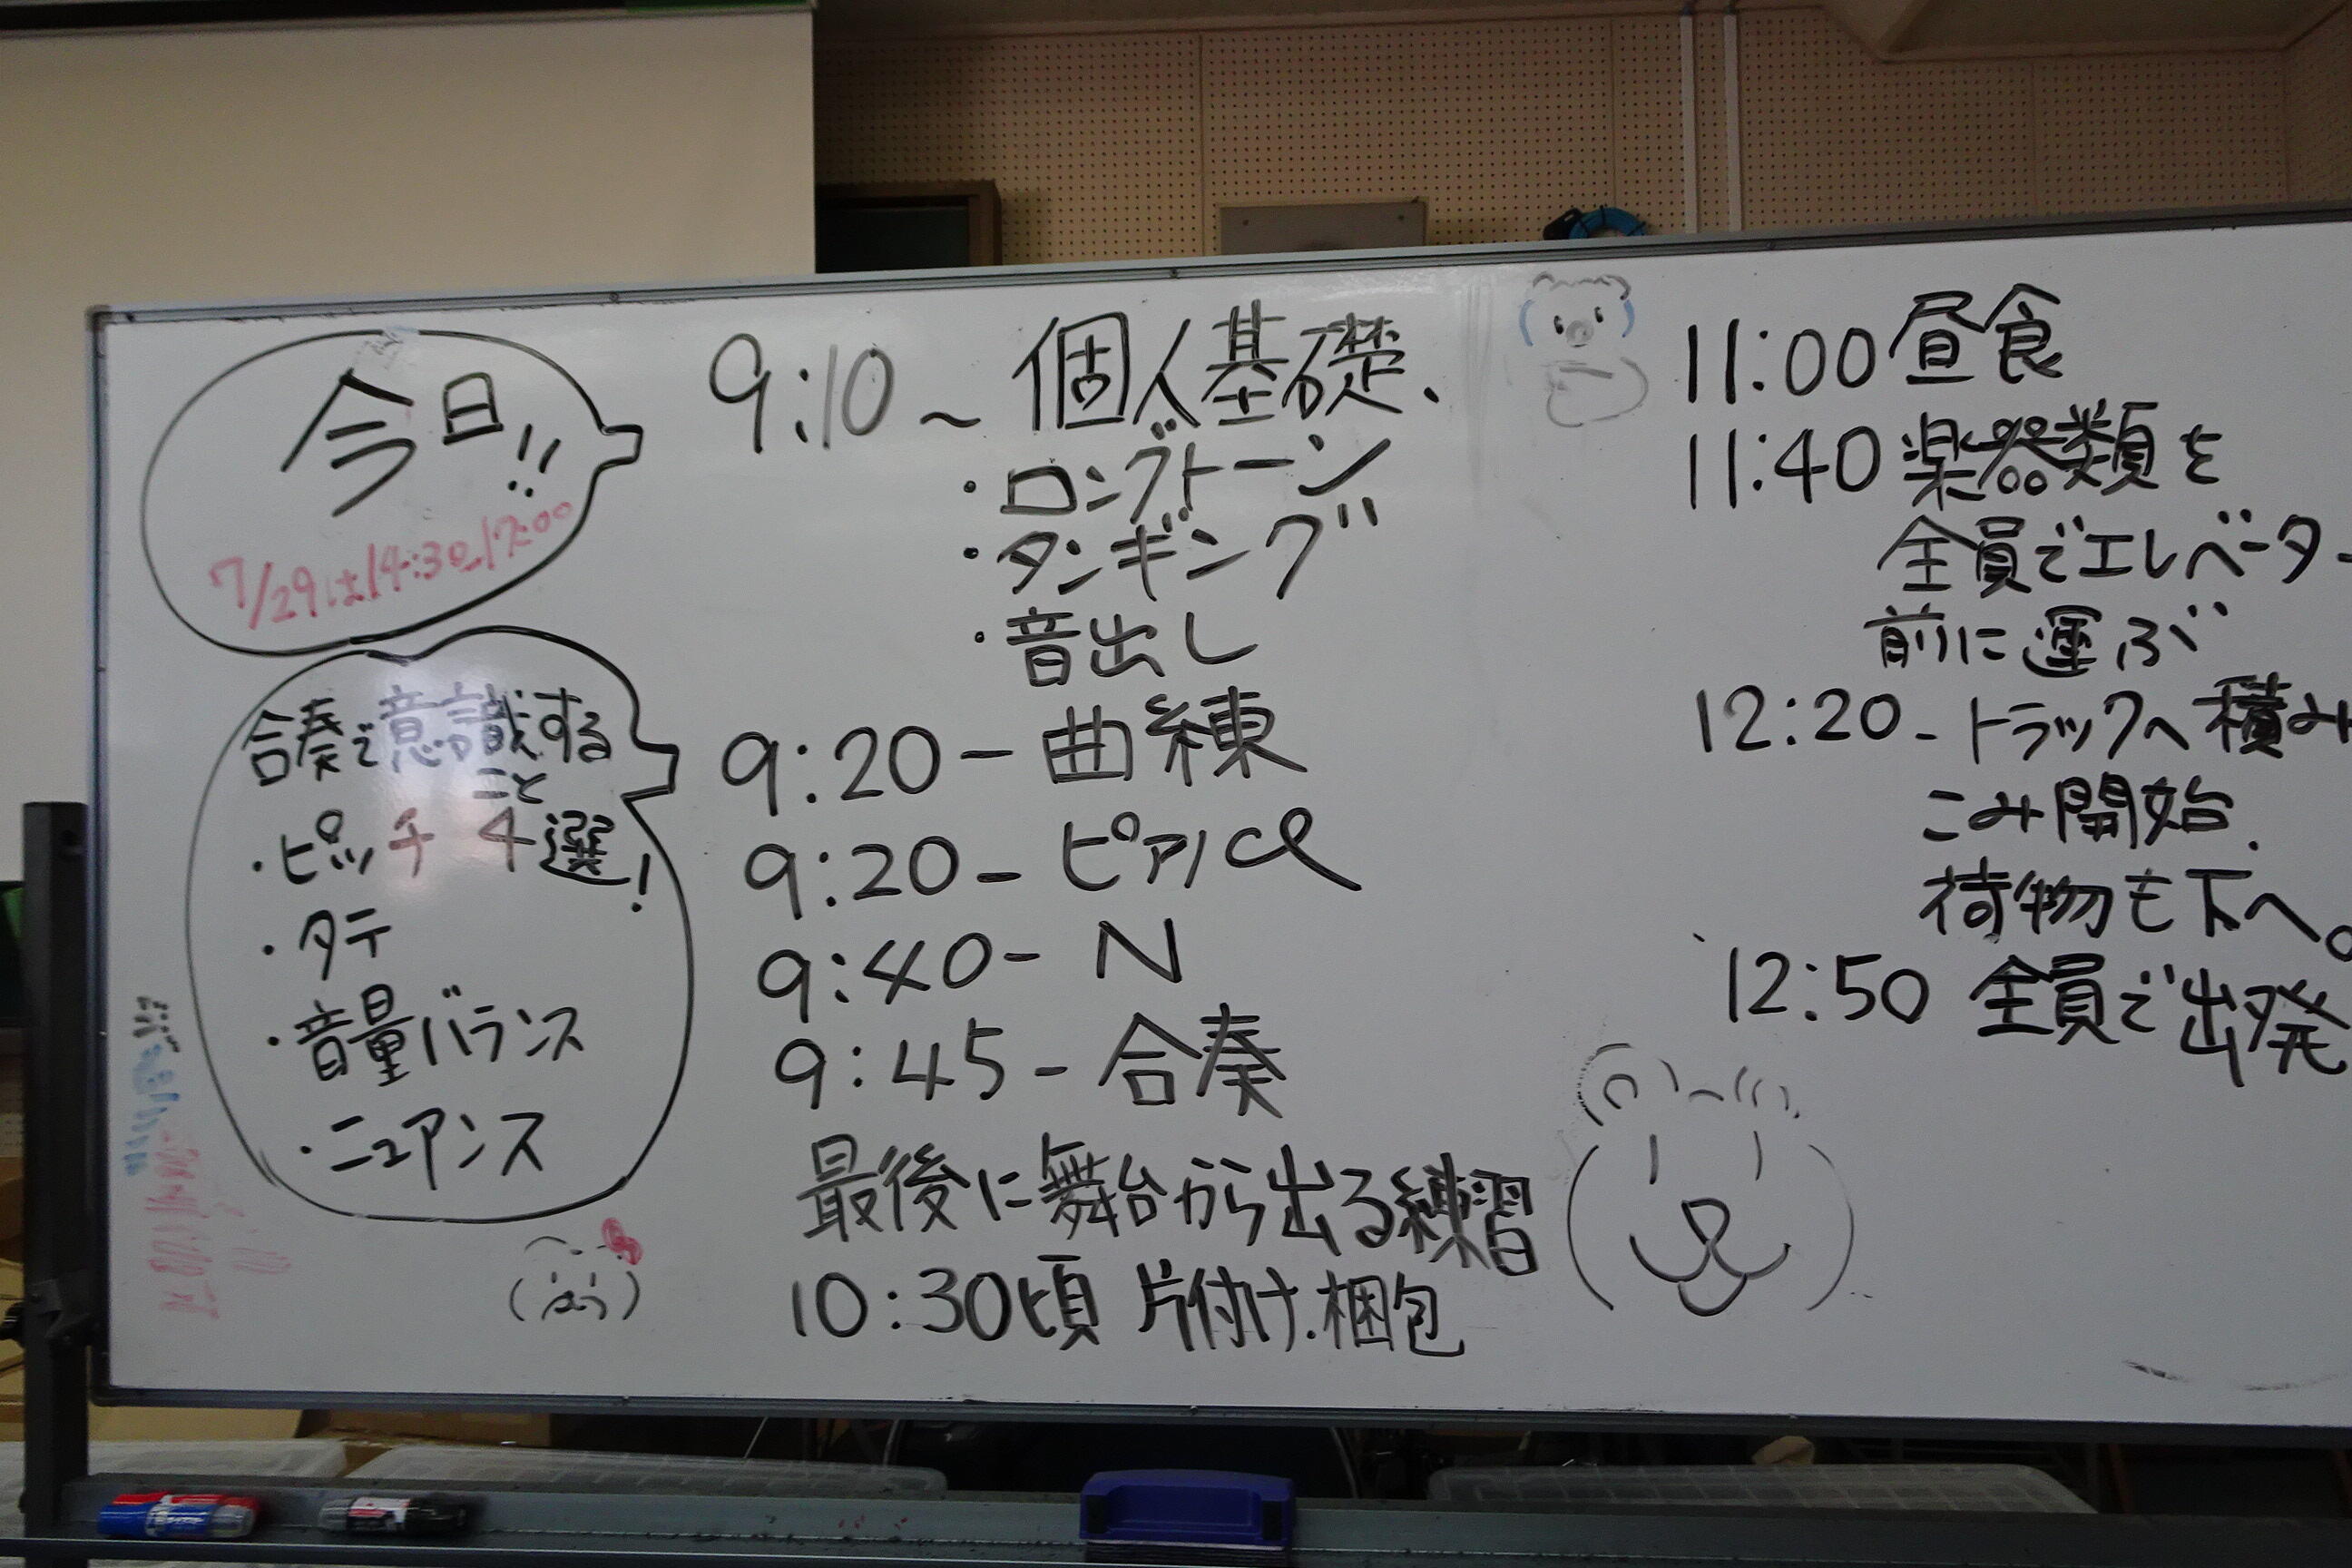 今日!!
7/29は14:30-17:00
合奏で意識する
こと
・ピッチ 4選!
・タテ
・音量バランス
・ニュアンス
9:10～個人基礎、
・ロングトーン
・タンギング
・音出し
9:20-曲練
9:20-ピアノ
9:40-N
9:45-合奏
最後に舞台から出る練習
10:30頃 片付け.梱包
11:00昼食
11:40楽器類を
全員でエレベーター
前に運ぶ
12:20-トラックへ積み
こみ開始.
荷物も下へ。
12:50 全員で出発